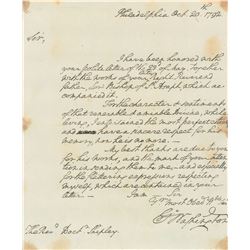 Philadelphia Oct. 20th 1792
Sir,
I have been honored with
your polite letter of the 23d of May together
with the works of your Right Reverend
father, Lord Bishop of St. Asaph, which ac-
companied it.
For the character & sentiments
of that venerable & amiable Divine, while
living, I entertained the most perfect esteem
and have a sincere respect for his
memory, now he is no more.
My best thanks are due to you
for his works, and the mark of your atten-
tion in sending them to me; and
for the flattering expressions respecting
myself, which are contained in your
letter. I am – Sir
Your most Obed
Go Washington
The Revd Doct. Shipley